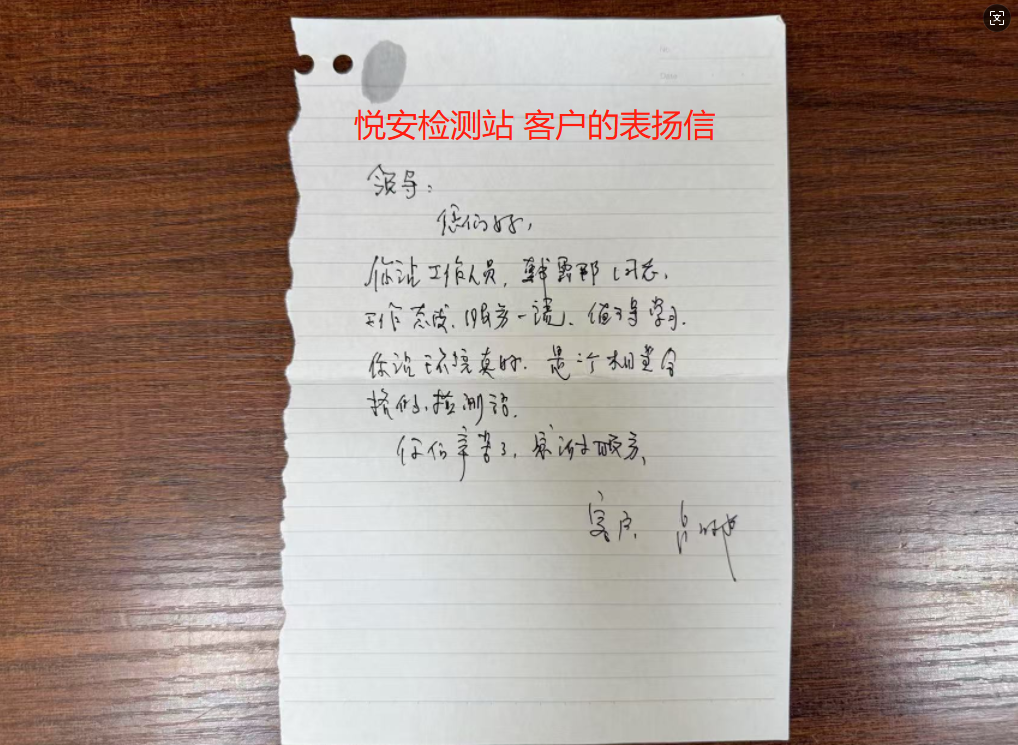 悦安检测站 客户的表扬信
领导:
您们好,
你站工作人员,韩 同志,
工作态度、服务一流、值得学习.
你站环境真好.是个相当合
格的、检测站.
你们辛苦了,感谢服务,
客户